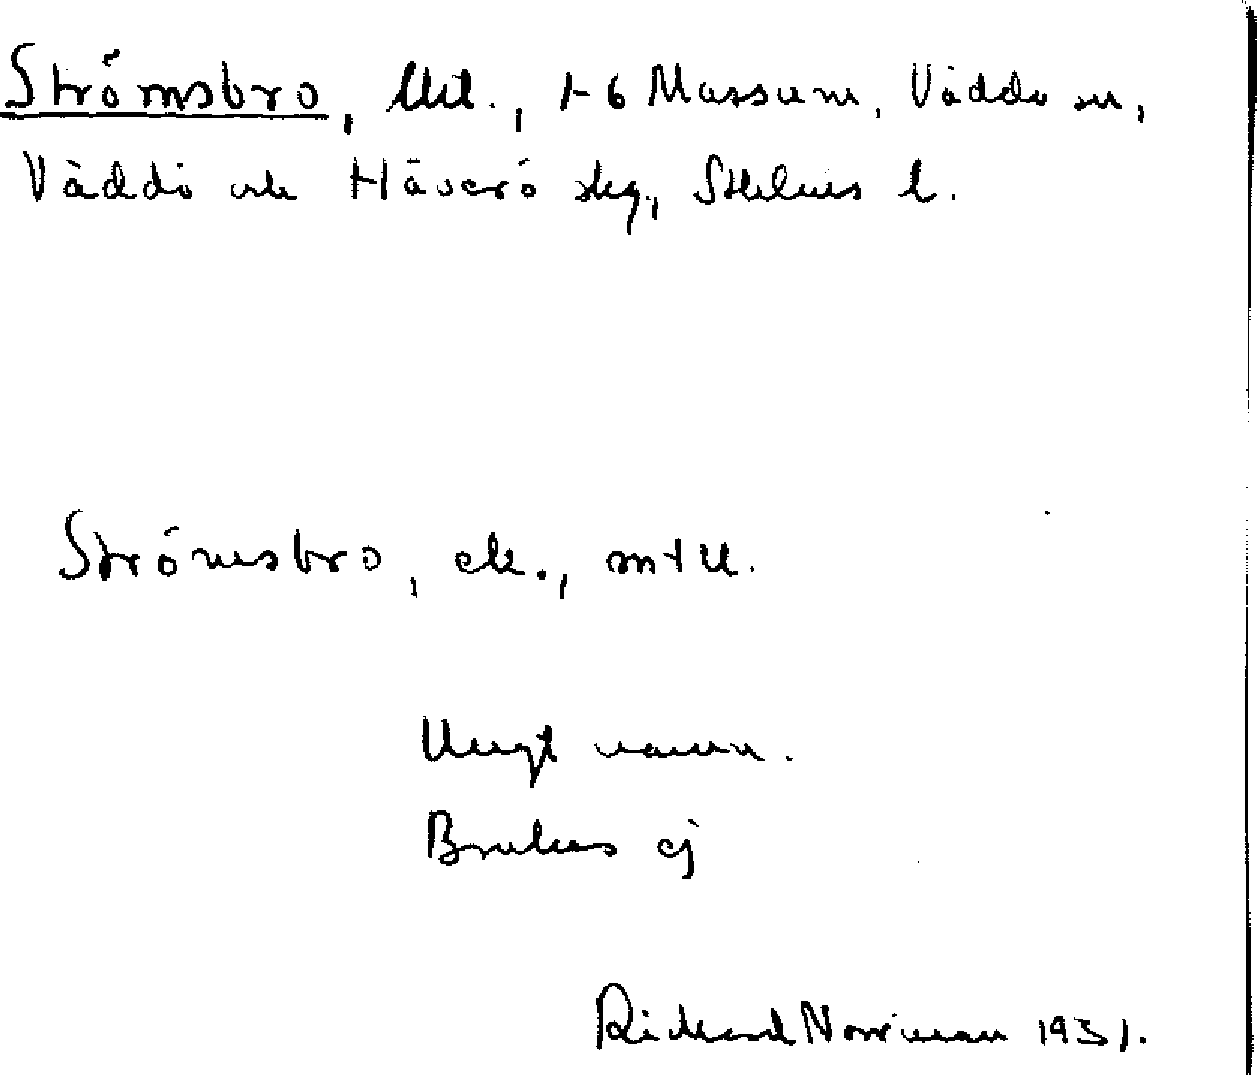 Strömsbro, Utl., 1-6 Massum, Väddö sn,
Väddö och Häverö skg, Sthlms l.
Strömsbro, ek., mtl.
Ungt namn.
Brukas ej
Richard Norrman 1931.